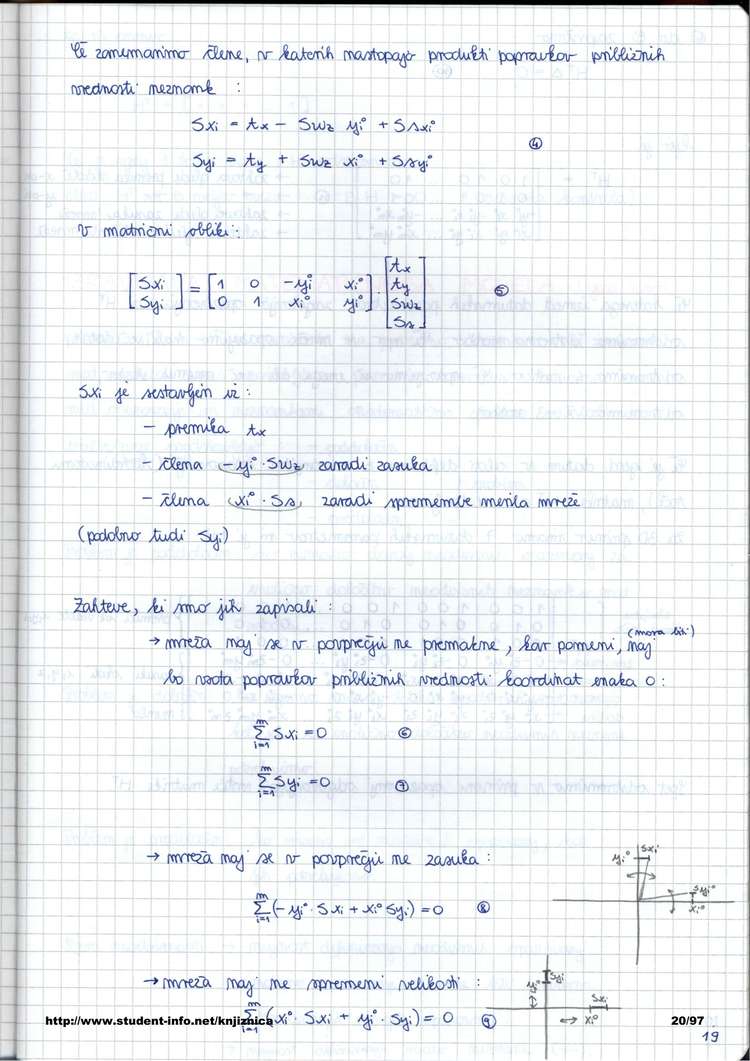 Če zanemarimo člene, v katerih nastopajo produkti popravkov približnih
vrednosti neznank :
δxi = tx − δωz yi° + δs xi°
δyi = ty + δωz xi° + δs yi° ④
V matrični obliki:
[δxi δyi] = [1 0 −yi° xi° 0 1 xi° yi°] · [tx ty δωz δs] ⑤
δxi je sestavljen iz :
− premika tx
− člena −yi° · δωz zaradi zasuka
− člena xi° · δs zaradi spremembe merila mreže
(podobno tudi δyi)
Zahteve, ki smo jih zapisali :
→ mreža naj se v povprečju ne premakne, kar pomeni, naj (mora biti)
bo vsota popravkov približnih vrednosti koordinat enaka 0 :
m Σ i=1 δxi = 0 ⑥
m Σ i=1 δyi = 0 ⑦
→ mreža naj se v povprečju ne zasuka :
m Σ i=1 (−yi° · δxi + xi° δyi) = 0 ⑧
yi° δxi
δyi°
xi°
→ mreža naj ne spremeni velikosti :
m Σ i=1 (xi° · δxi + yi° · δyi) = 0 ⑨
yi° δyi
δxi
xi°
http://www.student-info.net/knjiznica 20/97
19